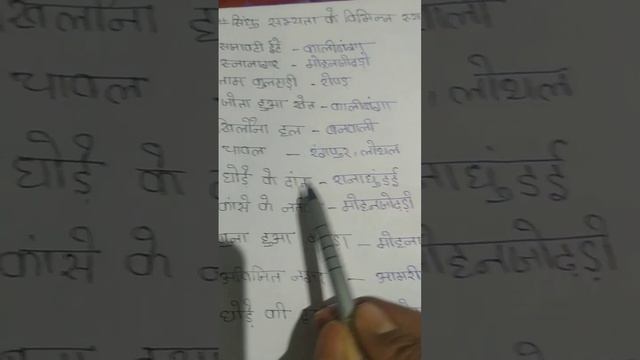 सिंधु सभ्यता के विभिन्न
सजावटी ईंटे - कालीबंगा
स्नानागार - मोहनजोदड़ो
ताम्र कुल्हाड़ी - रोपड़
जोता हुआ खेत - कालीबंगा
खिलौना हल - बनवाली
चावल - रंगपुर, लोथल
घोड़े के दांत - रानाघुंडई
कांसे के - मोहनजोदड़ो
हुआ - मोहन
- आमरी
घोड़े की